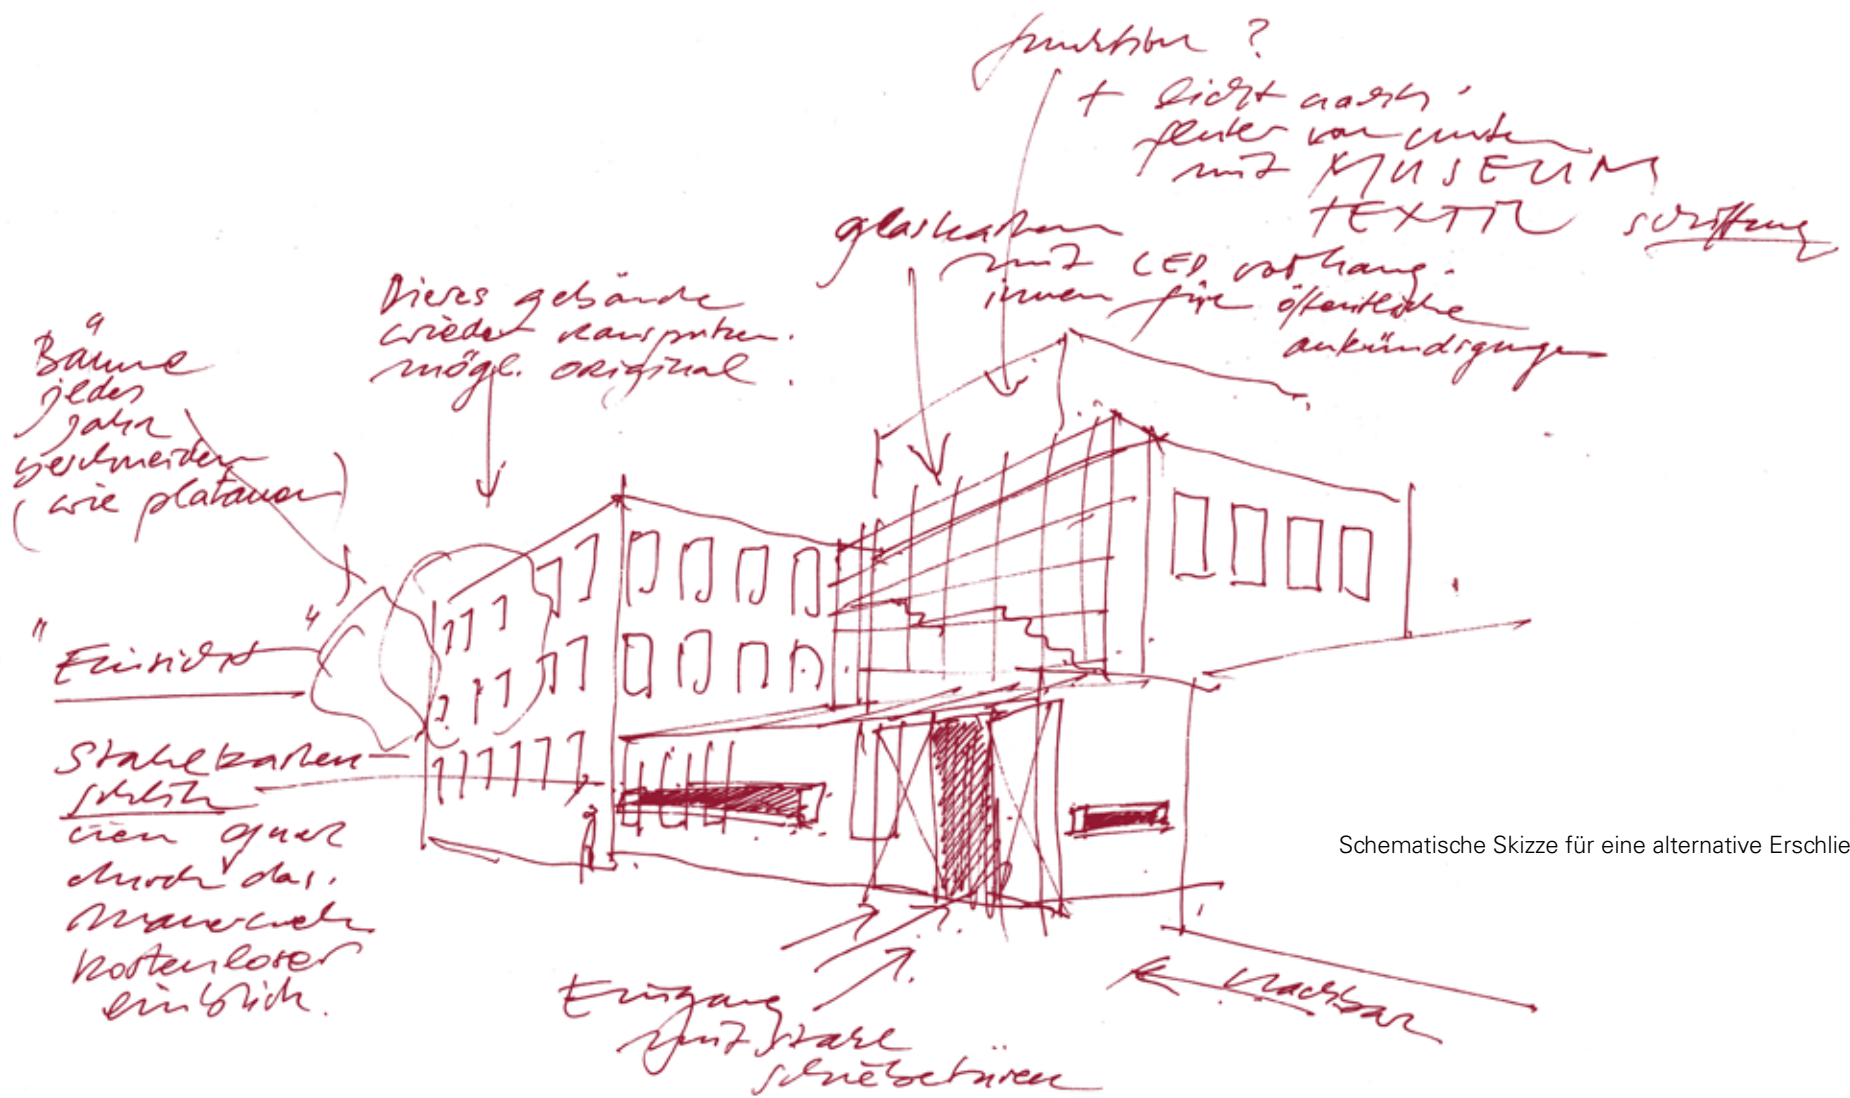 funktion ?
+ licht nach
fenster von unten
mit MUSEUM
TEXTIL schriftzug
glaskasten
mit LED vorhang.
innen für öffentliche
ankündigungen
Dieses gebäude
wieder rausputzen.
mögl. original.
"
Bäume
jedes
Jahr
beschneiden
(wie platanen)
"Einsicht"
Stahlkasten
schlitz
quer
durch das.
Mauerwerk
kostenloser
einblick.
Eingang
mit stahl
schiebetüren
Nachbar
Schematische Skizze für eine alternative Erschlie